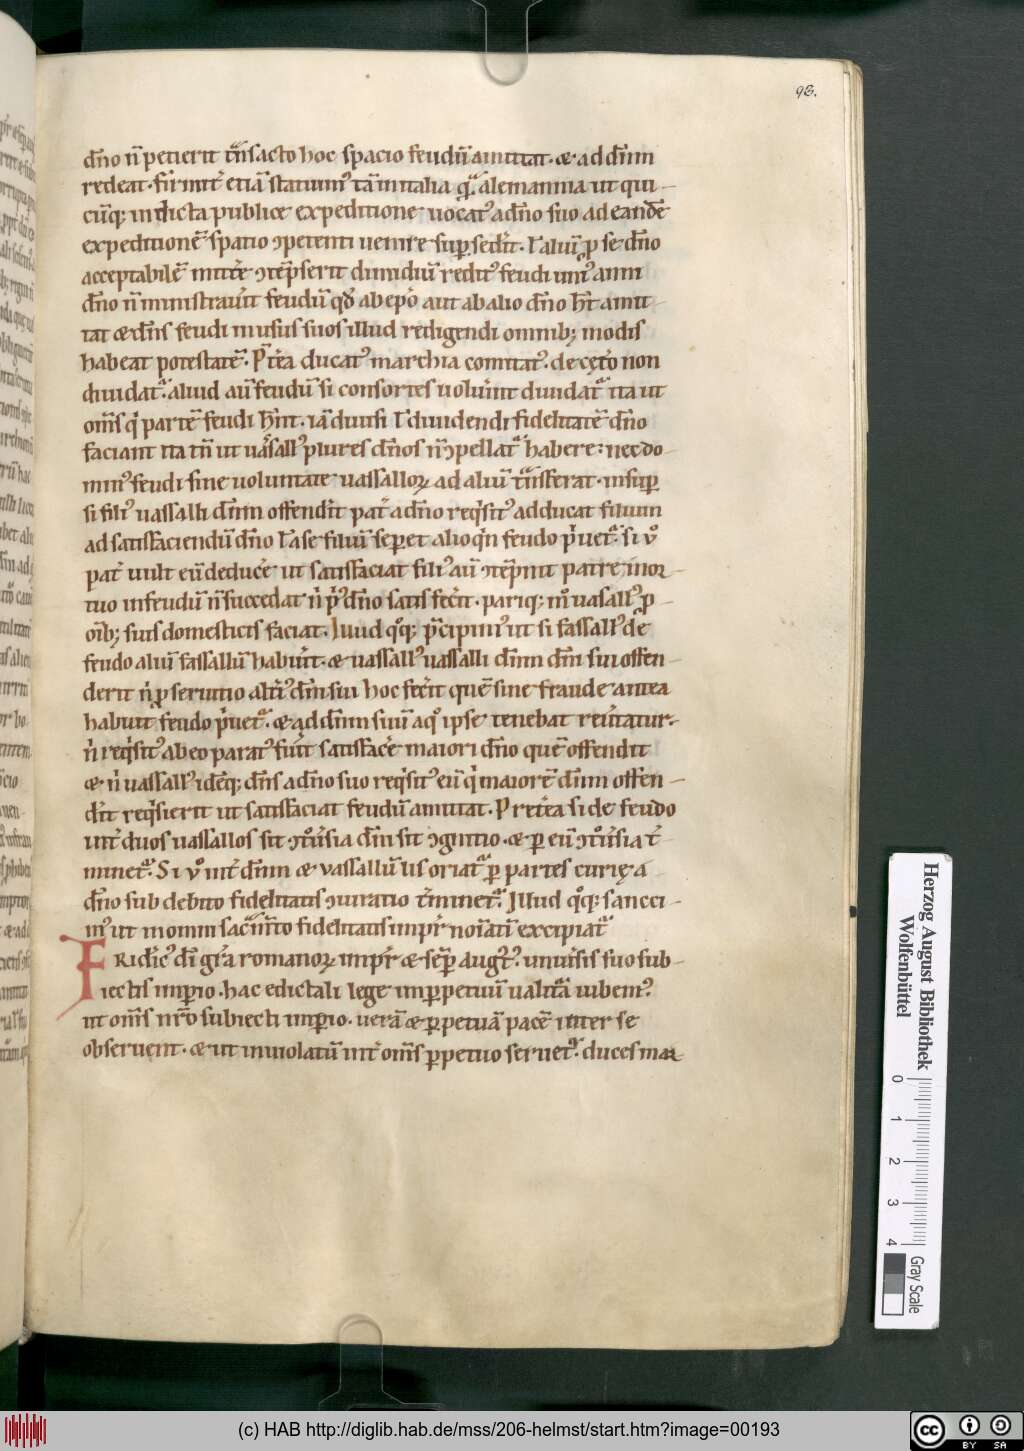 93.
dn̄o n̄ petierit tn̄sacto hoc spacio feudū amittat. & ad dn̄m
redeat. firmit̉ etiā statuim᷒ tā in italia qͣ alemannia ut qui-
cūq; indicta publice expeditione uocat᷒ a dn̄o suo ad eandē
expeditionē spatio ɔpetenti uenire suꝑsed̉it. ł aliū ꝓ se dn̄o
acceptabilē mitt̉e ɔtēpserit dimidiū redit᷒ feudi uni᷒ anni
dn̄o n̄ ministraủit feudū qd̄ ab ep̄o aut ab alio dn̄o hēt amit-
tat & dn̄s feudi in usus suos illud redigendi omnib; modis
habeat potestatē. P̄t̉ea ducat᷒ marchia comitat᷒. de cęt̉o non
diuidatͬ. aliud aū feudū si consortes uolủint diuidatͬ ita ut
om̄s qͥ partē feudi hn̄t. iā diuisi ł diuidendi fidelitatē dn̄o
faciant ita tn̄ ut uasall᷒ plures dn̄os n̄ ɔpellatͬ habere: nec do-
min᷒ feudi sine uoluntate uassalloꝝ ad aliū tn̄sferat. insuꝑ
si fili᷒ uassalli dn̄m offend̉it pat̉ a dn̄o req̇sit᷒ adducat filium
ad satisfaciendū dn̄o ł a se filiū seꝑet alioqͥn feudo pͥuetͬ. si v̊
pat̉ uult eū deduc̉e ut satisfaciat fili᷒ aū ɔtēpnit patre mor-
tuo in feudū n̄ succedat nͥ pͥ᷒ dn̄o satis fec̉it. pariq; m̊ uasall᷒ ꝓ
oīb; suis domesticis faciat. Illud qͦq; p̄cipim᷒ ut si fassall᷒ de
feudo aliū fassallū habủit. & uassall᷒ uassalli dn̄m dn̄i sui offen-
derit nͥ ꝓ seruitio alt̉i᷒ dn̄i sui hoc fec̉it quē sine fraude antea
habuit feudo pͥuetͬ. & ad dn̄m suū a qͦ ipse tenebat reủtatur.
nͥ req̇sit᷒ ab eo parat᷒ fủit satisfac̉e maiori dn̄o quē offendit
& nͥ uassall᷒ idēq; dn̄s a dn̄o suo req̇sit᷒ eū qͥ maiorē dn̄m offen-
d̉it req̇sierit ut satisfaciat feudū amittat. Pret̉ea si de feudo
int̉ duos uassallos sit ɔtͦủsia dn̄i sit ɔgnitio. & ꝑ eū ɔtͦủsia t̉-
minetͬ. Si v̊ int̉ dn̄m & vassallū lis oriatͬ ꝑ partes curię a
dn̄o sub debito fidelitatis ɔiuratio t̉minetͬ. Illud qͦq; sancci-
m᷒ ut in omni sacͣm̄to fidelitatis impr̄ noīatī excipiatͬ
FRidic̉᷒ dī gr̄a romanoꝝ impr̄ & sēꝑ aug᷒t᷒. uniủsis suo sub-
iectis imꝑio. hac edictali lege in ꝑpetuū ualit̉ā iubem᷒.
ut om̄s nr̄o subiecti imꝑio. uerā & ꝑpetuā pacē inter se
obseruent. & ut inuiolatū int̉ om̄s ꝑpetuo seruetͬ. duces mar-
Herzog August Bibliothek
Wolfenbüttel
0 1 2 3 4
Gray Scale
(c) HAB http://diglib.hab.de/mss/206-helmst/start.htm?image=00193
cc BY SA